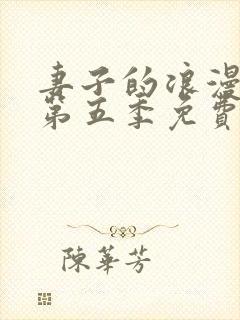 妻子的浪漫
第五季免費
陳華芳